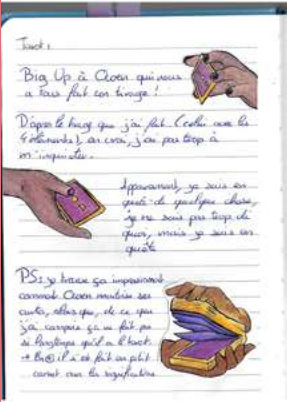 Tarot :
Big Up à Owen qui nous
a tous fait son tirage !
D'après le tirage que j'ai fait (celui avec les
4 éléments), en vrai, j'ai pas trop à
m'inquiéter.
Apparemment, je suis en
quête de quelque chose,
je ne sais pas trop de
quoi, mais je suis en
quête
PS : je trouve ça impressionnant
comment Owen maitrise ses
cartes, alors que, de ce que
j'ai compris ça ne fait pas
si longtemps qu'il a le tarot
→ il s'est fait un petit
carnet avec les significations